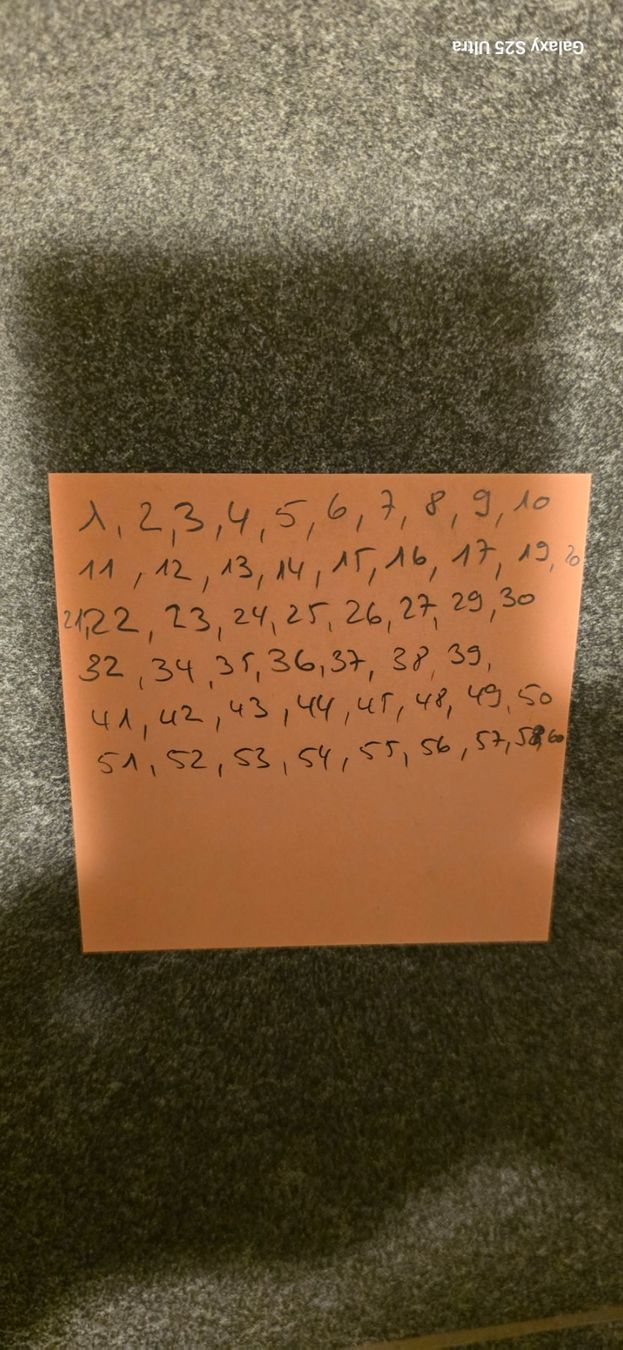 Galaxy S25 Ultra
1, 2, 3, 4, 5, 6, 7, 8, 9, 10
11, 12, 13, 14, 15, 16, 17, 19, 20
21, 22, 23, 24, 25, 26, 27, 29, 30
32, 34, 35, 36, 37, 38, 39,
41, 42, 43, 44, 45, 48, 49, 50
51, 52, 53, 54, 55, 56, 57, 58, 60